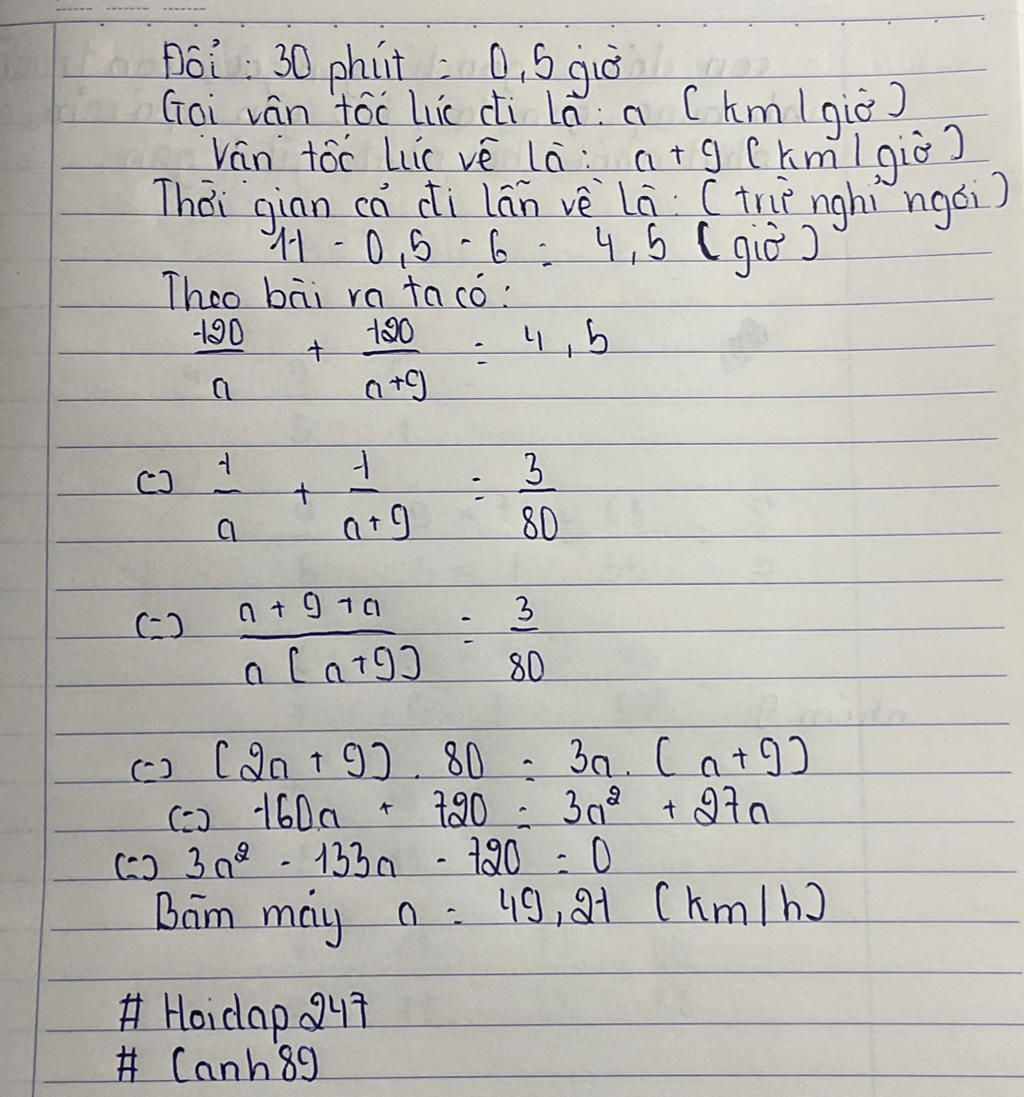 Đổi : 30 phút = 0,5 giờ
Gọi vân tốc lúc đi là : a ( km / giờ )
Vân tốc lúc về là : a + 9 ( km / giờ )
Thời gian cả đi lẫn về là : ( trừ nghỉ ngơi )
11 - 0,5 - 6 = 4,5 ( giờ )
Theo bài ra ta có :
120/a + 120/(a+9) = 4,5
(=) 1/a + 1/(a+9) = 3/80
(=) (a + 9 + a)/(a ( a + 9 )) = 3/80
(=) ( 2a + 9 ) . 80 = 3a . ( a + 9 )
(=) 160a + 720 = 3a² + 27a
(=) 3a² - 133a - 720 = 0
Bấm máy a = 49,21 ( km / h )
# Hoidap247
# Canh89